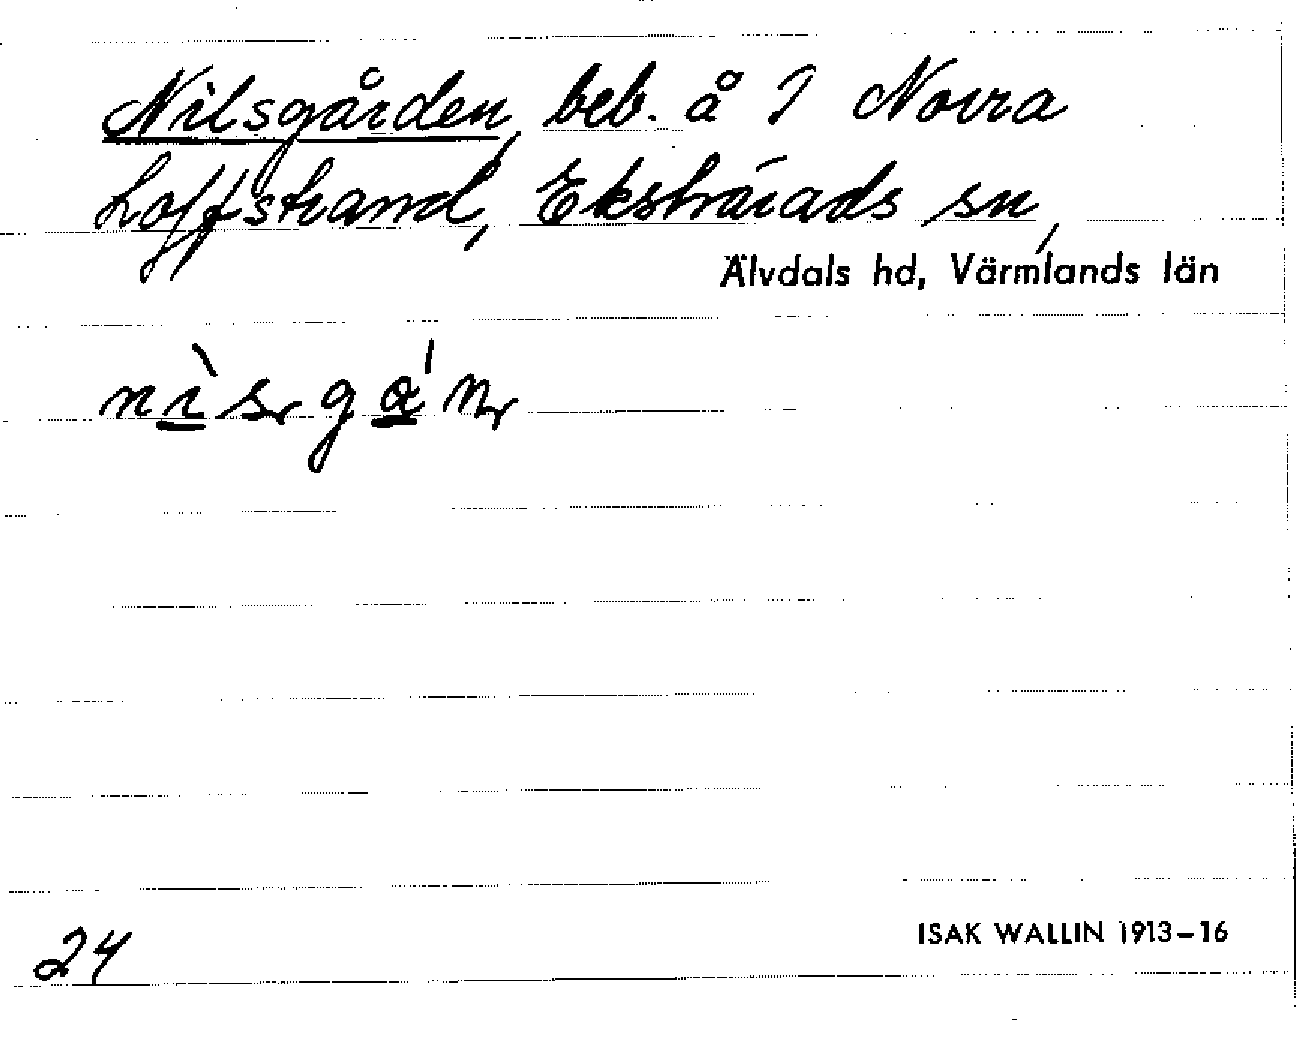 Nilsgården, beb. å 7 Norra
Loffstrand, Ekshärads sn,
Älvdals hd, Värmlands län
nìsgá'n
24
ISAK WALLIN 1913–16